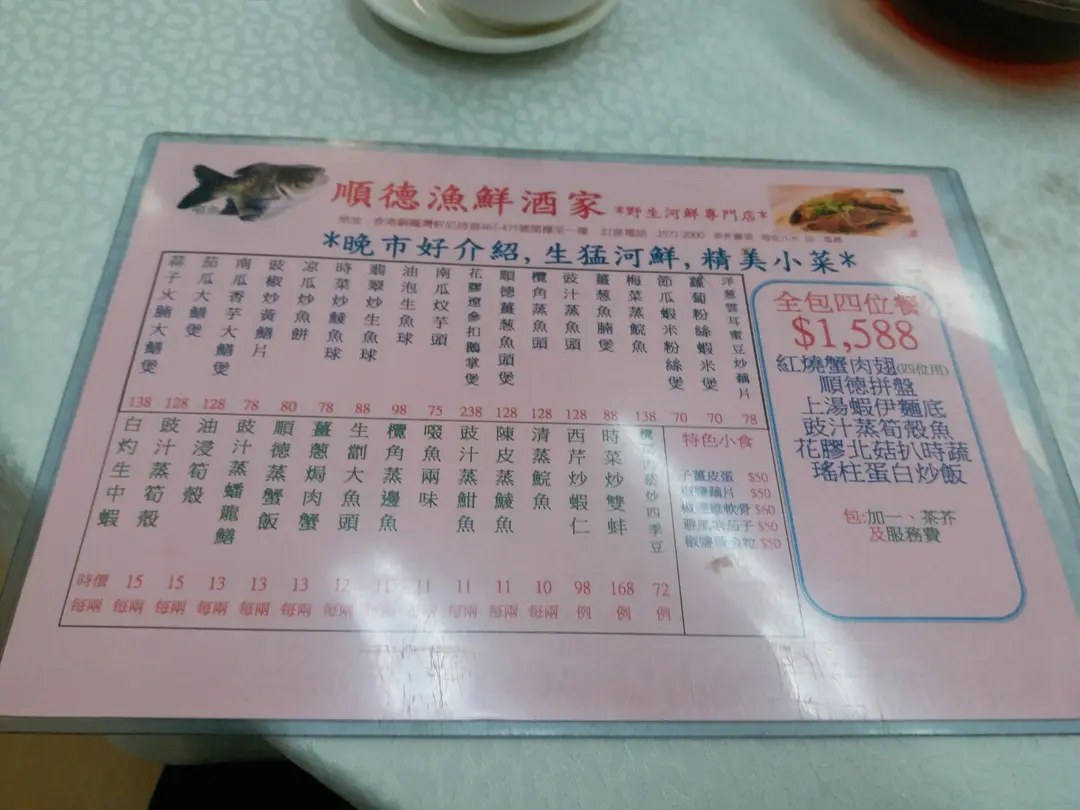 順德漁鮮酒家 *野生河鮮專門店*
訂座電話 2573 2000
*晚市好介紹, 生猛河鮮, 精美小菜*
蒜子火腩大鱔煲
茄瓜大鱔煲
南瓜香芋大鱔煲
豉椒炒黃鱔片
涼瓜炒魚餅
時菜炒鯪魚球
翡翠炒生魚球
油泡生魚球
南瓜炆芋頭
花膠遼參扣鵝掌煲
順德薑葱魚頭煲
欖角蒸魚頭
豉汁蒸魚頭
薑葱魚腩煲
梅菜蒸鯇魚
節瓜蝦米粉絲煲
蘿蔔粉絲蝦米煲
洋葱雲耳蜜豆炒藕片
138 128 128 78 80 78 88 98 75 238 128 128 128 88 138 70 70 78
白灼生中蝦
豉汁蒸筍殼
油浸筍殼
豉汁蒸蟠龍鱔
順德蒸蟹飯
薑蔥焗肉蟹
生劏大魚頭
欖角蒸邊魚
啜魚兩味
豉汁蒸魽魚
陳皮蒸鯪魚
清蒸鯇魚
西芹炒蝦仁
時菜炒雙蚌
炒四季豆
時價 15 15 13 13 13 12 11 11 11 11 10 98 168 72
每兩 每兩 每兩 每兩 每兩 每兩 每兩 每兩 每兩 每兩 每兩 例 例 例
特色小食
子薑皮蛋 $50
藕片 $50
軟骨 $60
茄子 $50
椒鹽 粒 $50
全包四位餐
$1,588
紅燒蟹肉翅(四位用)
順德拼盤
上湯蝦伊麵底
豉汁蒸筍殼魚
花膠北菇扒時蔬
瑤柱蛋白炒飯
包:加一、茶芥
及服務費